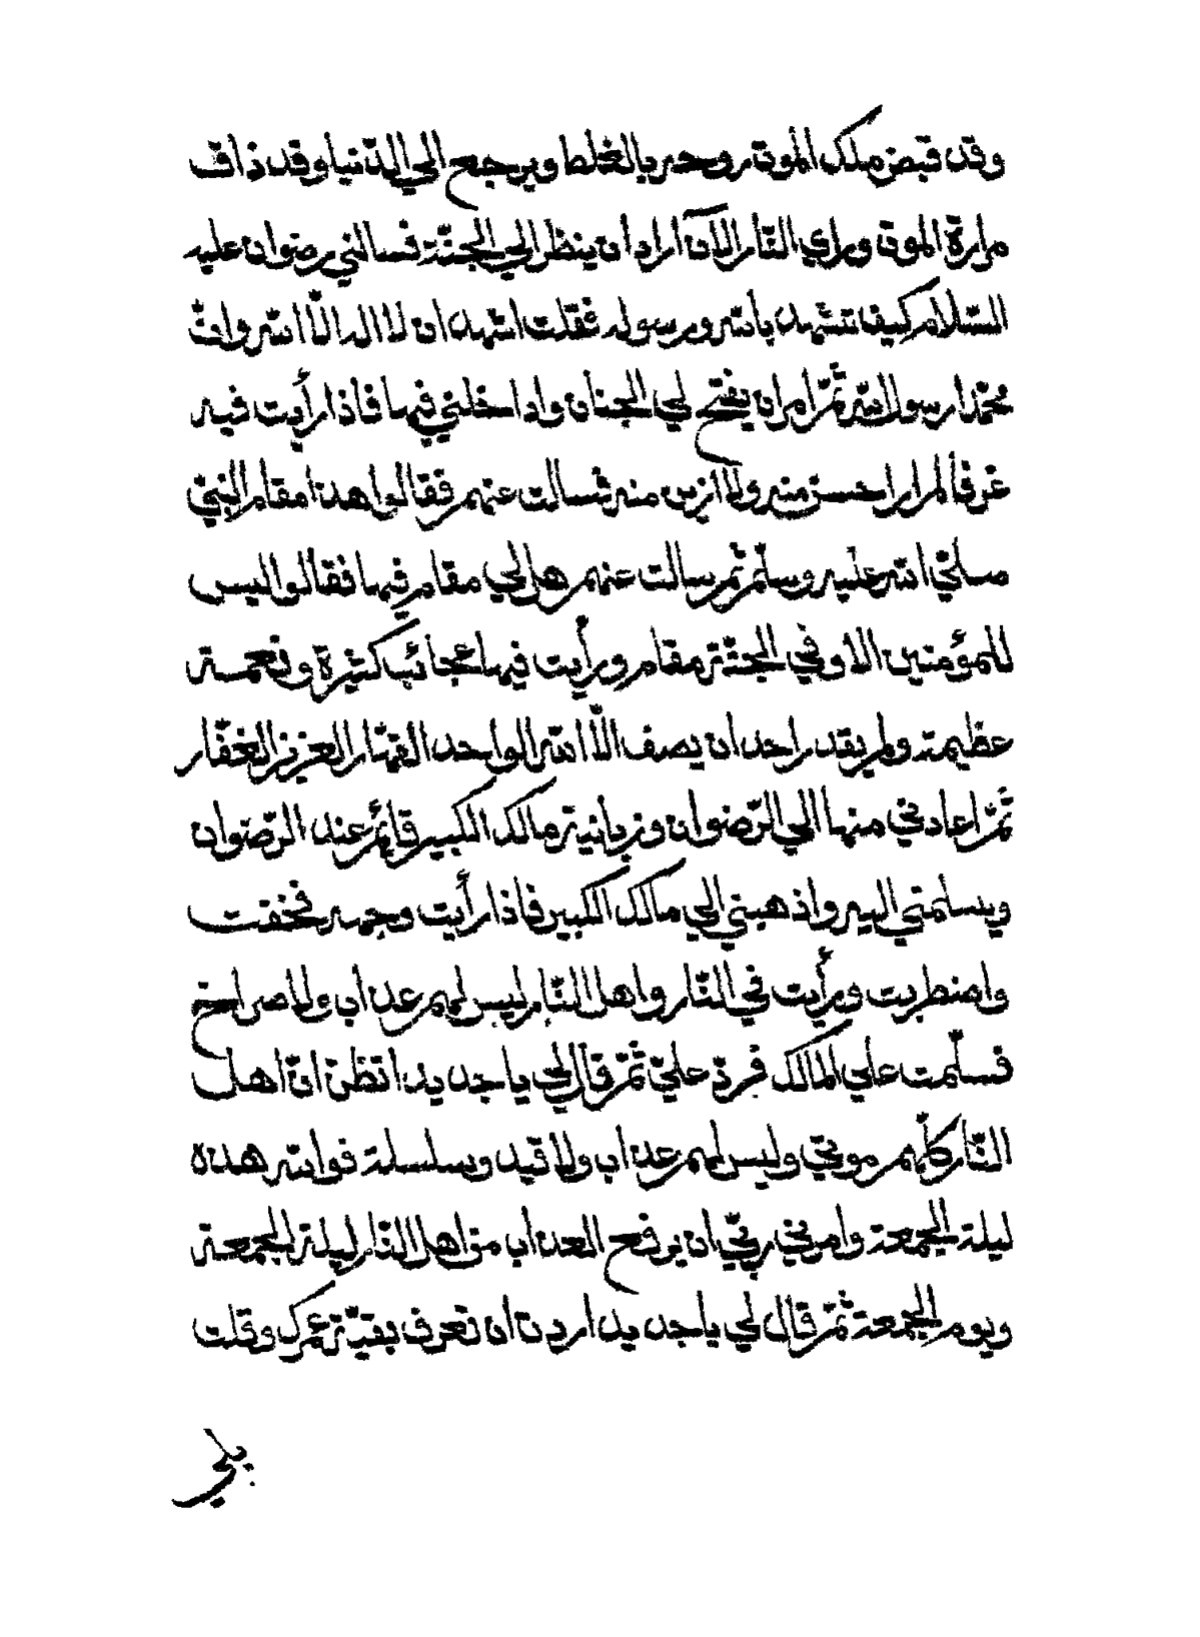 وقد قبض ملك الموت روحه بالغلط ويرجع الي الدّنيا وقد ذاق
مرارة الموت وراي النّار الآن اراد ان ينظر الي الجنّة فسالني رضوان عليه
السّلام كيف تتشهد بالله ورسوله فقلت اشهد ان لا اله الّا الله وانّ
محمّدا رسول الله ثمّ امر ان يفتح لي الجنان وادخلني فيها فاذا رأيت فيه
غرفا لم ار احسن منه ولا ازين منه فسالت عنهم فقالوا هذا مقام النبيّ
صلّي الله عليه وسلّم ثم سالت عنهم هل لي مقام فيها فقالوا ليس
للمؤمنين الا وفي الجنّة مقام ورأيت فيها عجائب كثيرة ونعمة
عظيمة ولم يقدر احد ان يصف الّا الله الواحد القهّار العزيز الغفّار
ثمّ اعادني منها الي الرّضوان وزبانية مالك الكبير قائم عند الرّضوان
ويسلمتي اليه واذهبني الي مالك الكبير فاذا رأيت وجهه فخفت
واضطربت ورأيت في النّار واهل النّار ليس لهم عذاب ولا صراخ
فسلّمت علي المالك فردّ عليّ ثمّ قال لي يا جديد اتظنّ انّ اهل
النّار كلّهم موتي وليس لهم عذاب ولا قيد وسلسلة فوالله هذه
ليلة الجمعة وامرني ربّي ان يرفع العذاب من اهل النّار ليلة الجمعة
ويوم الجمعة ثمّ قال لي يا جديد اردت ان تعرف بقيّة عمرك وقلت
بلي